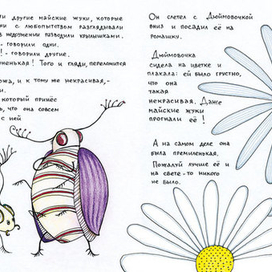 и другие майские жуки, которые
с любопытством разглядывали
недоумении разводили крылышками.
- говорили одни.
! - говорили другие.
ненькая! Того и гляди, переломится
и к тому же некрасивая, -
который принёс
, что она совсем
с ней
Он слетел с Дюймовочкой
вниз и посадил её на
ромашку.
Дюймовочка
сидела на цветке и
плакала: ей было грустно,
что она
такая
некрасивая. Даже
майские жуки
прогнали её!
А на самом деле она
была премиленькая.
Пожалуй лучше её и
на свете-то никого
не было.